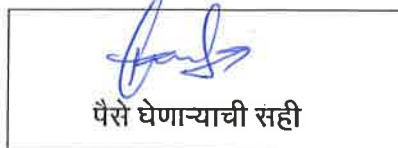 पैसे घेणाऱ्याची सही